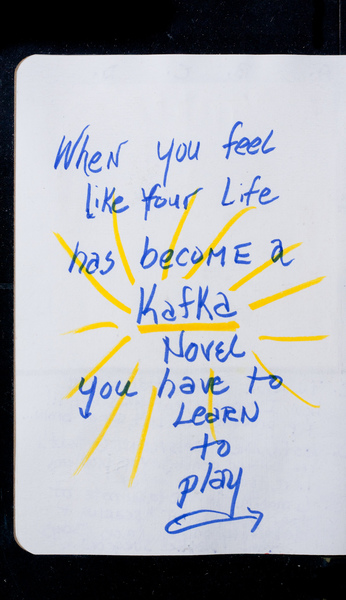 When you feel
like your Life
has become a
Kafka
Novel
you have to
LEARN
to
play